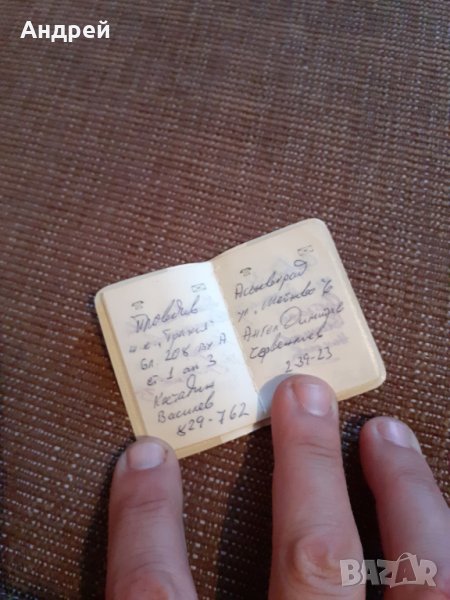 Андрей
Пловдив
ж.к. "Тракия"
бл. 208 вх А
ет. 1 ап 3
Костадин
Василев
829-762
Асеновград
ул. "Шейново" 6
Ангел Димитров
Червенков
2-39-23
BAZAR